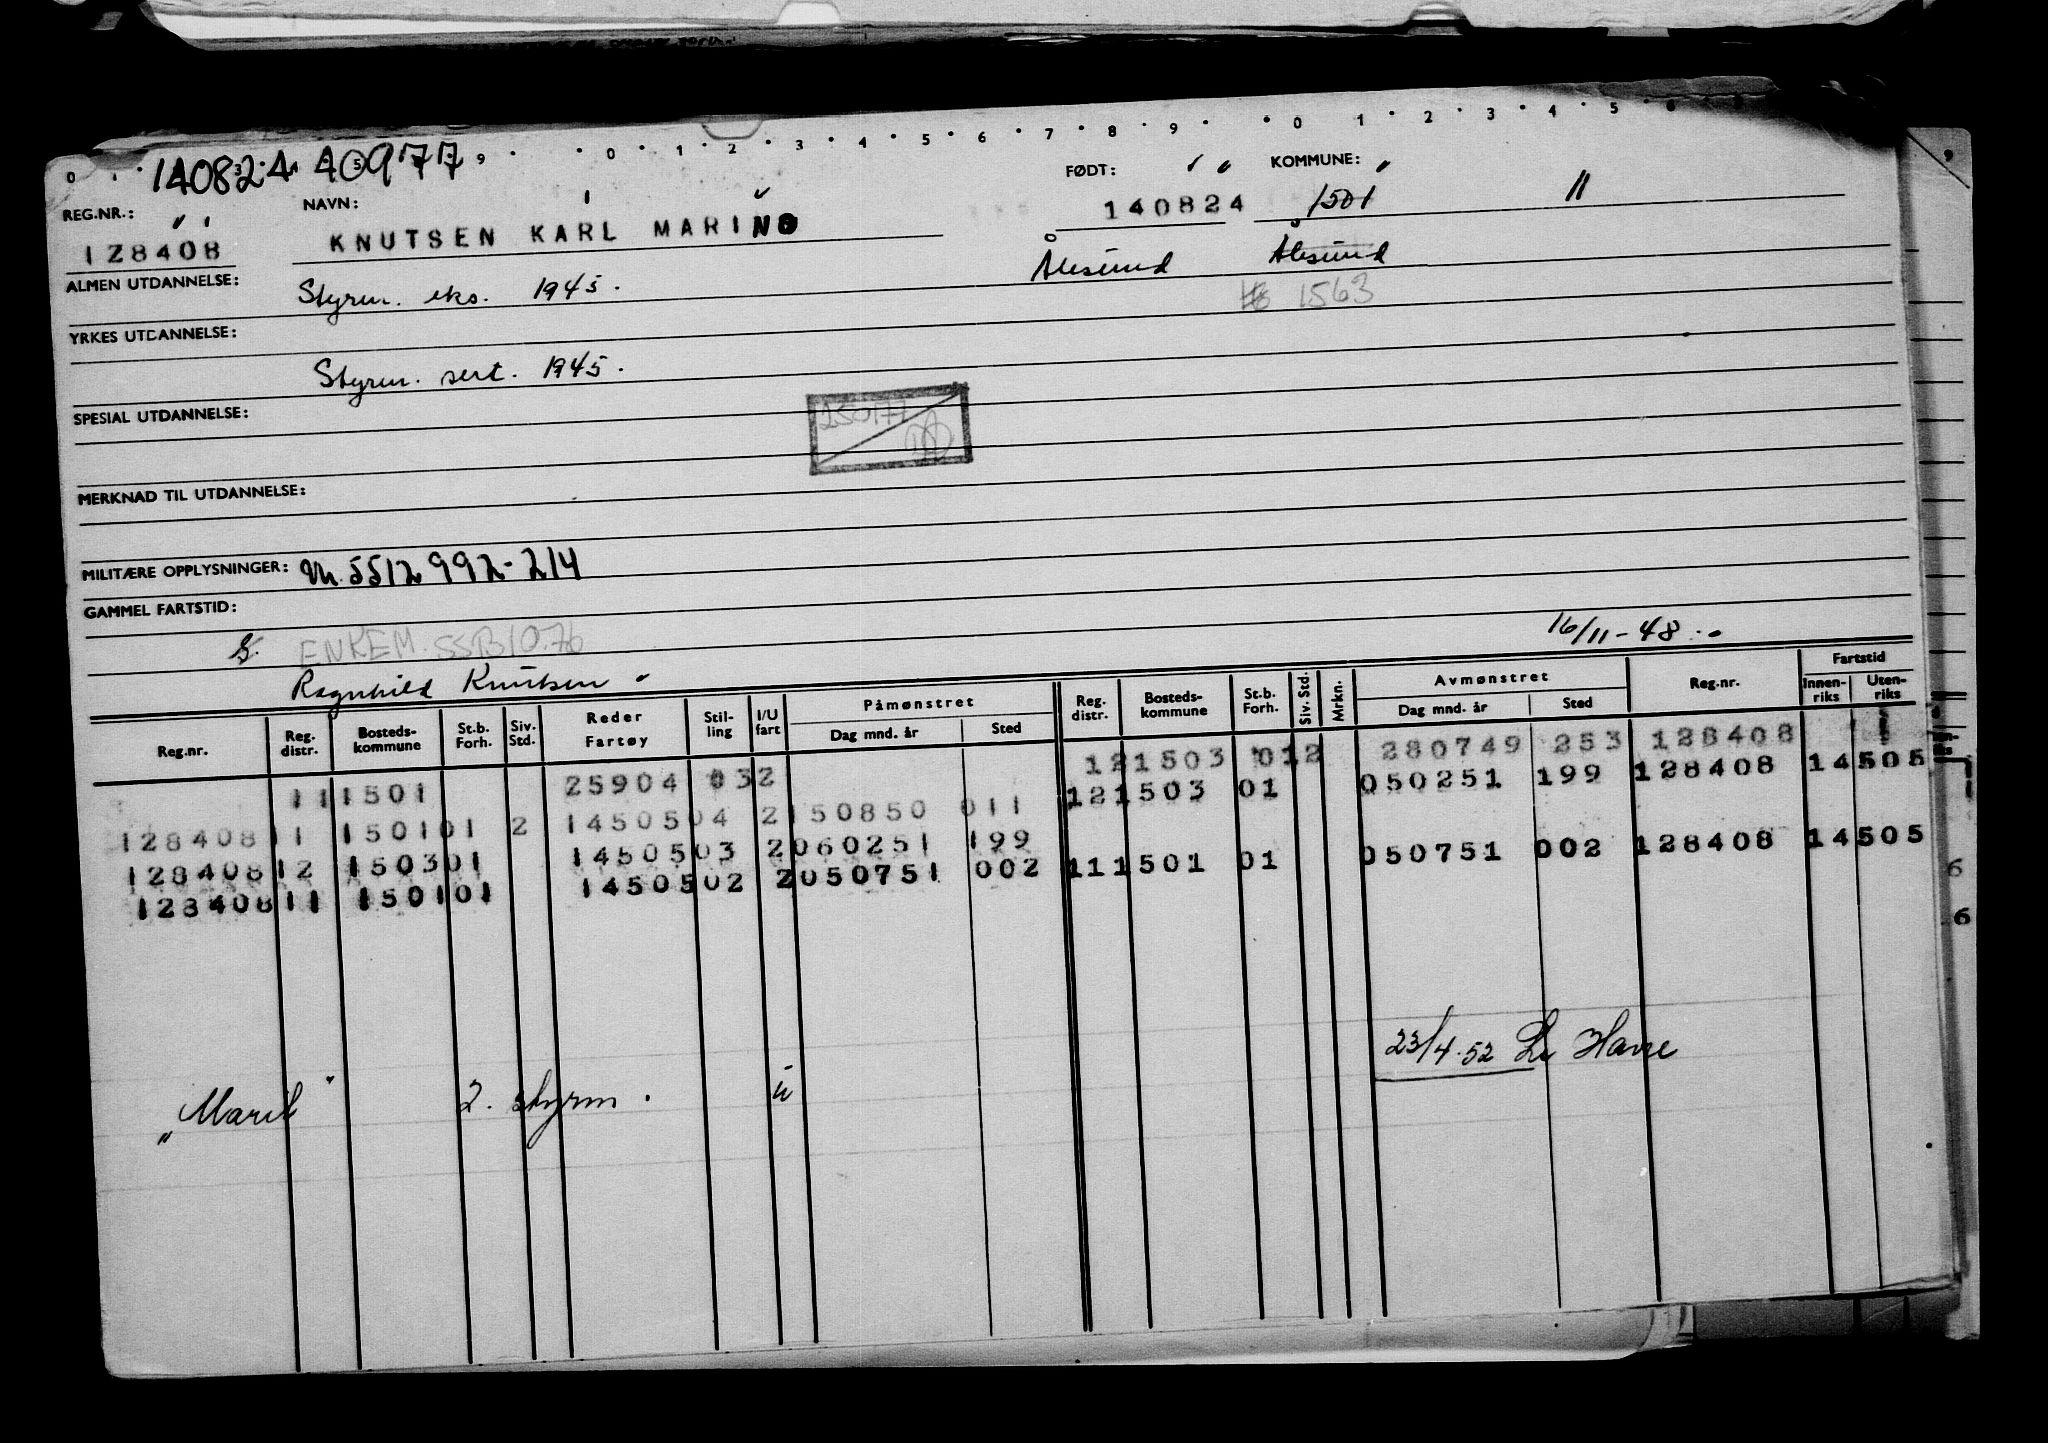 0 1 2 3 4 5 6 7 8 9 0 1 2 3 4 5
140824 40977
REG.NR.: NAVN: FØDT: KOMMUNE:
128408 KNUTSEN KARL MARINO 140824 1501 11
ALMEN UTDANNELSE: Styrm. eks. 1945. Ålesund Ålesund
1563
YRKES UTDANNELSE:
Styrm. sert. 1945.
SPESIAL UTDANNELSE:
250177
MERKNAD TIL UTDANNELSE:
MILITÆRE OPPLYSNINGER: M. 5512 992-214
GAMMEL FARTSTID:
G. ENKEM. SSB 10.76 16/11-48
Ragnhild Knutsen
Reg.nr. Reg. distr. Bosteds-kommune St.b. Forh. Siv. Std. Reder Fartøy Stil-ling I/U fart Påmønstret Dag mnd. år Sted Reg. distr. Bosteds-kommune St.b. Forh. Siv. Std. Mrkn. Avmønstret Dag mnd. år Sted Reg.nr. Fartstid Innen-riks Uten-riks
11 1501 25904 032 12 1503 012 280749 253 128408
128408 11 1501 01 2 14505 04 2 150850 011 12 1503 01 050251 199 128408 14505
128408 12 1503 01 14505 03 2 060251 199 11 1501 01 050751 002 128408 14505
128408 11 1501 01 14505 02 2 050751 002
"Maril" 2. styrm. u 23/4.52 Le Havre